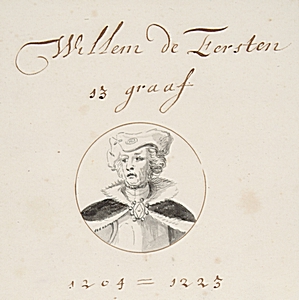 Willem de Eersten
13 graaf
1204 = 1223